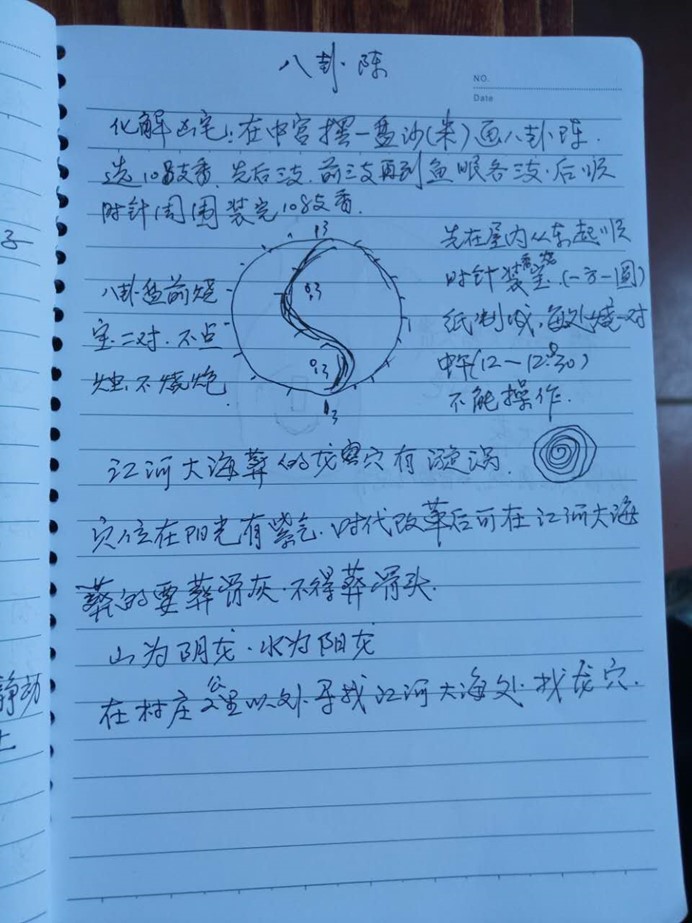 八卦·陈
NO.
Date
化解凶宅:在中宫摆一盘沙(米)画八卦阵.
选108支香.先后三支.前三支再到鱼眼各三支.后顺
时针周围装完108支香.
先在屋内从东起顺
时针装香窑(一方一圆)
纸制成,每处烧一对
中午(12—12:30)
不能操作.
八卦盘前烧
宝二对.不点
烛.不烧炮
13
0.3
0.3
13
江河大海葬的龙穴有漩涡.
穴位在阳光有紫气.时代改革后可在江河大海
葬的要葬骨灰.不得葬骨头.
山为阴龙.水为阳龙
在村庄2公里以外寻找江河大海处.找龙穴.
子
静动
上